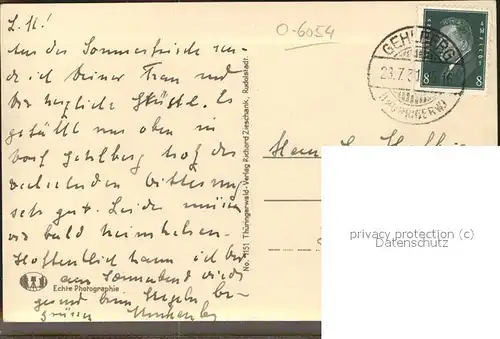 O-6054
L. H.!
Aus der Sommerfrische sen-
de ich Deiner Frau und
Dir herzliche Grüße. Es
gefällt uns oben in
Gehlberg trotz der
wechselnden Witterung
sehr gut. Leider müssen
wir bald heimkehren.
Hoffentlich kann ich Dich
am Sonnabend wieder
gesund beim Kegeln be-
grüßen
No. 1151 Thüringerwald-Verlag Richard Zieschank, Rudolstadt.
Echte Photographie
GEHLBERG
23.7.31
(THÜRINGERW)
8 8
Herrn
privacy protection (c)
Datenschutz